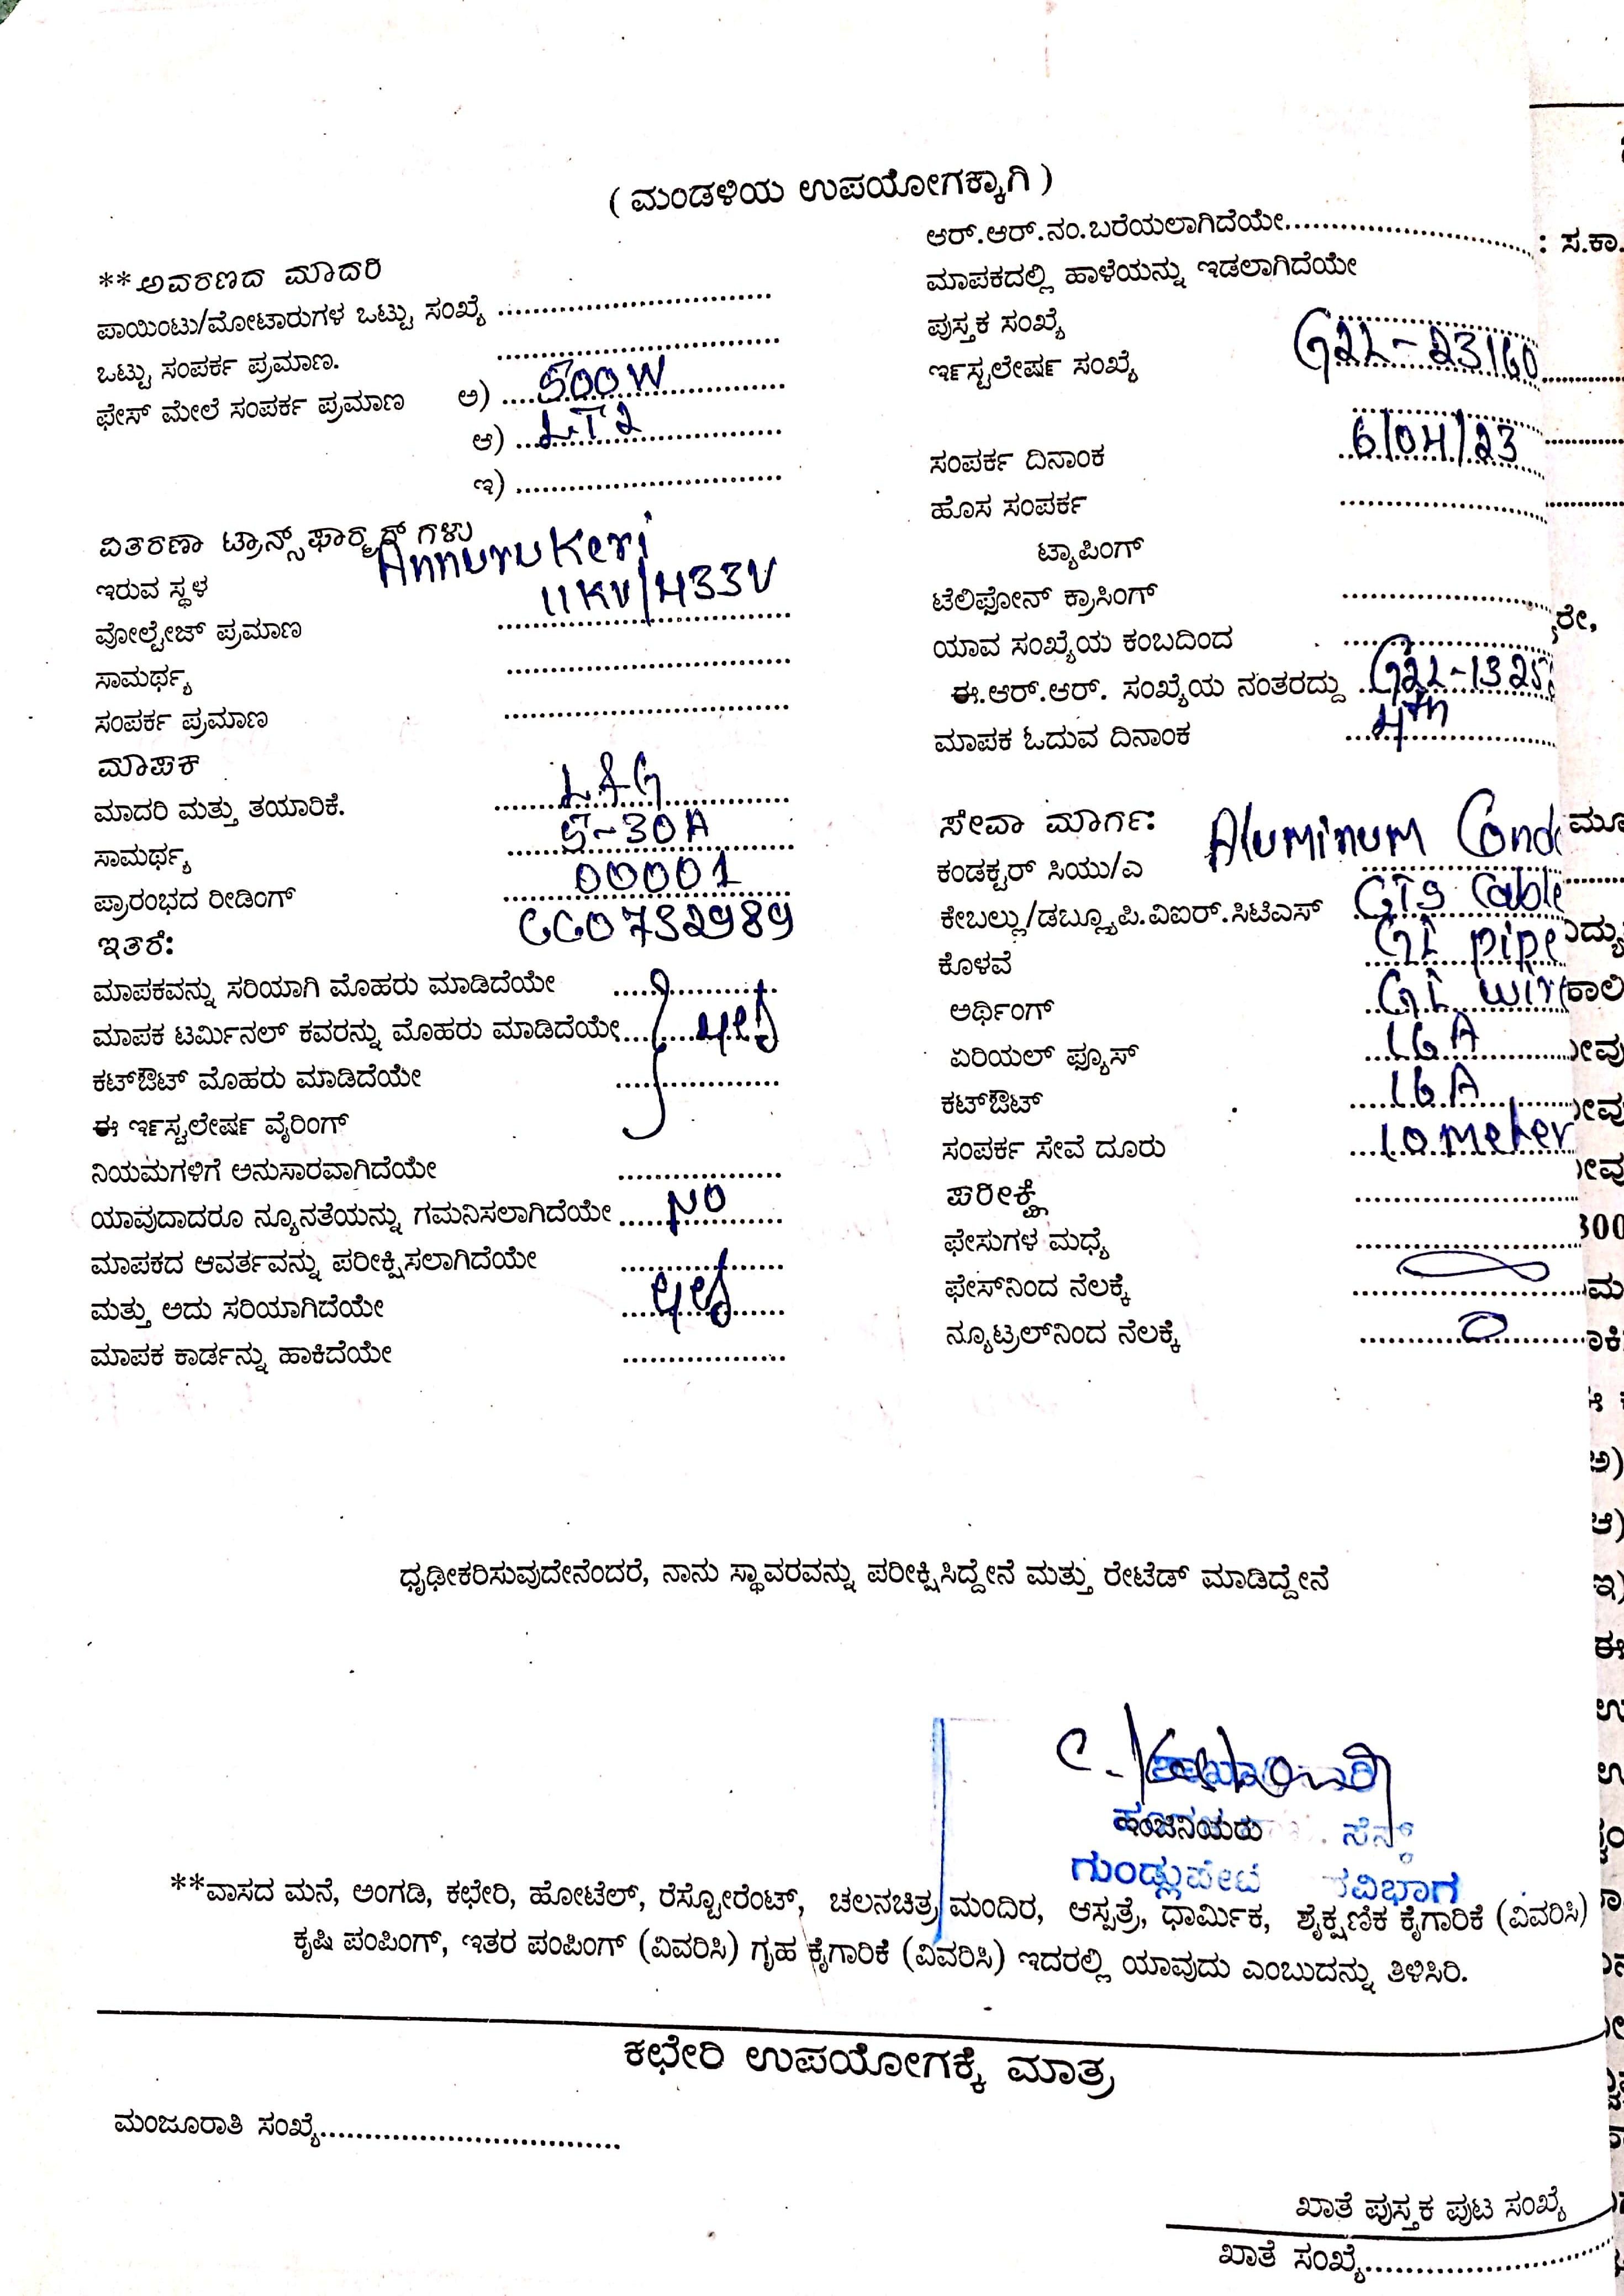 ( ಮಂಡಳಿಯ ಉಪಯೋಗಕ್ಕಾಗಿ )
**ಅವರಣದ ಮಾದರಿ
ಪಾಯಿಂಟು/ಮೋಟಾರುಗಳ ಒಟ್ಟು ಸಂಖ್ಯೆ
ಒಟ್ಟು ಸಂಪರ್ಕ ಪ್ರಮಾಣ.
ಫೇಸ್ ಮೇಲೆ ಸಂಪರ್ಕ ಪ್ರಮಾಣ ಅ) 500W
ಆ) LT2
ಇ)
ವಿತರಣಾ ಟ್ರಾನ್ಸ್‌ಫಾರ್ಮರ್ ಗಳು
ಇರುವ ಸ್ಥಳ Annurukeri
ವೋಲ್ಟೇಜ್ ಪ್ರಮಾಣ 11KV/433V
ಸಾಮರ್ಥ್ಯ
ಸಂಪರ್ಕ ಪ್ರಮಾಣ
ಮಾಪಕ
ಮಾದರಿ ಮತ್ತು ತಯಾರಿಕೆ. L&G
ಸಾಮರ್ಥ್ಯ 5-30A
ಪ್ರಾರಂಭದ ರೀಡಿಂಗ್ 00001
ಇತರೆ:
ಮಾಪಕವನ್ನು ಸರಿಯಾಗಿ ಮೊಹರು ಮಾಡಿದೆಯೇ
ಮಾಪಕ ಟರ್ಮಿನಲ್ ಕವರನ್ನು ಮೊಹರು ಮಾಡಿದೆಯೇ yes
ಕಟ್‌ಔಟ್ ಮೊಹರು ಮಾಡಿದೆಯೇ
ಈ ಇನ್‌ಸ್ಟಲೇಷನ್ ವೈರಿಂಗ್
ನಿಯಮಗಳಿಗೆ ಅನುಸಾರವಾಗಿದೆಯೇ
ಯಾವುದಾದರೂ ನ್ಯೂನತೆಯನ್ನು ಗಮನಿಸಲಾಗಿದೆಯೇ NO
ಮಾಪಕದ ಆವರ್ತವನ್ನು ಪರೀಕ್ಷಿಸಲಾಗಿದೆಯೇ
ಮತ್ತು ಅದು ಸರಿಯಾಗಿದೆಯೇ yes
ಮಾಪಕ ಕಾರ್ಡನ್ನು ಹಾಕಿದೆಯೇ
ಆರ್.ಆರ್.ನಂ.ಬರೆಯಲಾಗಿದೆಯೇ
ಮಾಪಕದಲ್ಲಿ ಹಾಳೆಯನ್ನು ಇಡಲಾಗಿದೆಯೇ
ಪುಸ್ತಕ ಸಂಖ್ಯೆ
ಇನ್‌ಸ್ಟಲೇಷನ್ ಸಂಖ್ಯೆ G2L-23160
ಸಂಪರ್ಕ ದಿನಾಂಕ 6/04/23
ಹೊಸ ಸಂಪರ್ಕ
ಟ್ಯಾಪಿಂಗ್
ಟೆಲಿಫೋನ್ ಕ್ರಾಸಿಂಗ್
ಯಾವ ಸಂಖ್ಯೆಯ ಕಂಬದಿಂದ
ಈ.ಆರ್.ಆರ್. ಸಂಖ್ಯೆಯ ನಂತರದ್ದು
ಮಾಪಕ ಓದುವ ದಿನಾಂಕ 4th
ಸೇವಾ ಮಾರ್ಗ:
ಕಂಡಕ್ಟರ್ ಸಿಯು/ಎ Aluminum
ಕೇಬಲ್ಲು/ಡಬ್ಲ್ಯೂಪಿ.ವಿಐರ್.ಸಿಟಿಎಸ್ Cable
ಕೊಳವೆ GI pipe
ಅರ್ಥಿಂಗ್ GI
ಏರಿಯಲ್ ಫ್ಯೂಸ್ 16A
ಕಟ್‌ಔಟ್ 16A
ಸಂಪರ್ಕ ಸೇವೆ ದೂರು 10 meter
ಪರೀಕ್ಷೆ
ಫೇಸುಗಳ ಮಧ್ಯೆ
ಫೇಸ್‌ನಿಂದ ನೆಲಕ್ಕೆ
ನ್ಯೂಟ್ರಲ್‌ನಿಂದ ನೆಲಕ್ಕೆ
ಧೃಢೀಕರಿಸುವುದೇನೆಂದರೆ, ನಾನು ಸ್ಥಾವರವನ್ನು ಪರೀಕ್ಷಿಸಿದ್ದೇನೆ ಮತ್ತು ರೇಟೆಡ್ ಮಾಡಿದ್ದೇನೆ
ಇಂಜಿನಿಯರು
ಗುಂಡ್ಲುಪೇಟೆ
**ವಾಸದ ಮನೆ, ಅಂಗಡಿ, ಕಛೇರಿ, ಹೋಟೆಲ್, ರೆಸ್ಟೋರೆಂಟ್, ಚಲನಚಿತ್ರ ಮಂದಿರ, ಆಸ್ಪತ್ರೆ, ಧಾರ್ಮಿಕ, ಶೈಕ್ಷಣಿಕ ಕೈಗಾರಿಕೆ (ವಿವರಿಸಿ)
ಕೃಷಿ ಪಂಪಿಂಗ್, ಇತರ ಪಂಪಿಂಗ್ (ವಿವರಿಸಿ) ಗೃಹ ಕೈಗಾರಿಕೆ (ವಿವರಿಸಿ) ಇದರಲ್ಲಿ ಯಾವುದು ಎಂಬುದನ್ನು ತಿಳಿಸಿರಿ.
ಕಛೇರಿ ಉಪಯೋಗಕ್ಕೆ ಮಾತ್ರ
ಮಂಜೂರಾತಿ ಸಂಖ್ಯೆ
ಖಾತೆ ಪುಸ್ತಕ ಪುಟ ಸಂಖ್ಯೆ
ಖಾತೆ ಸಂಖ್ಯೆ